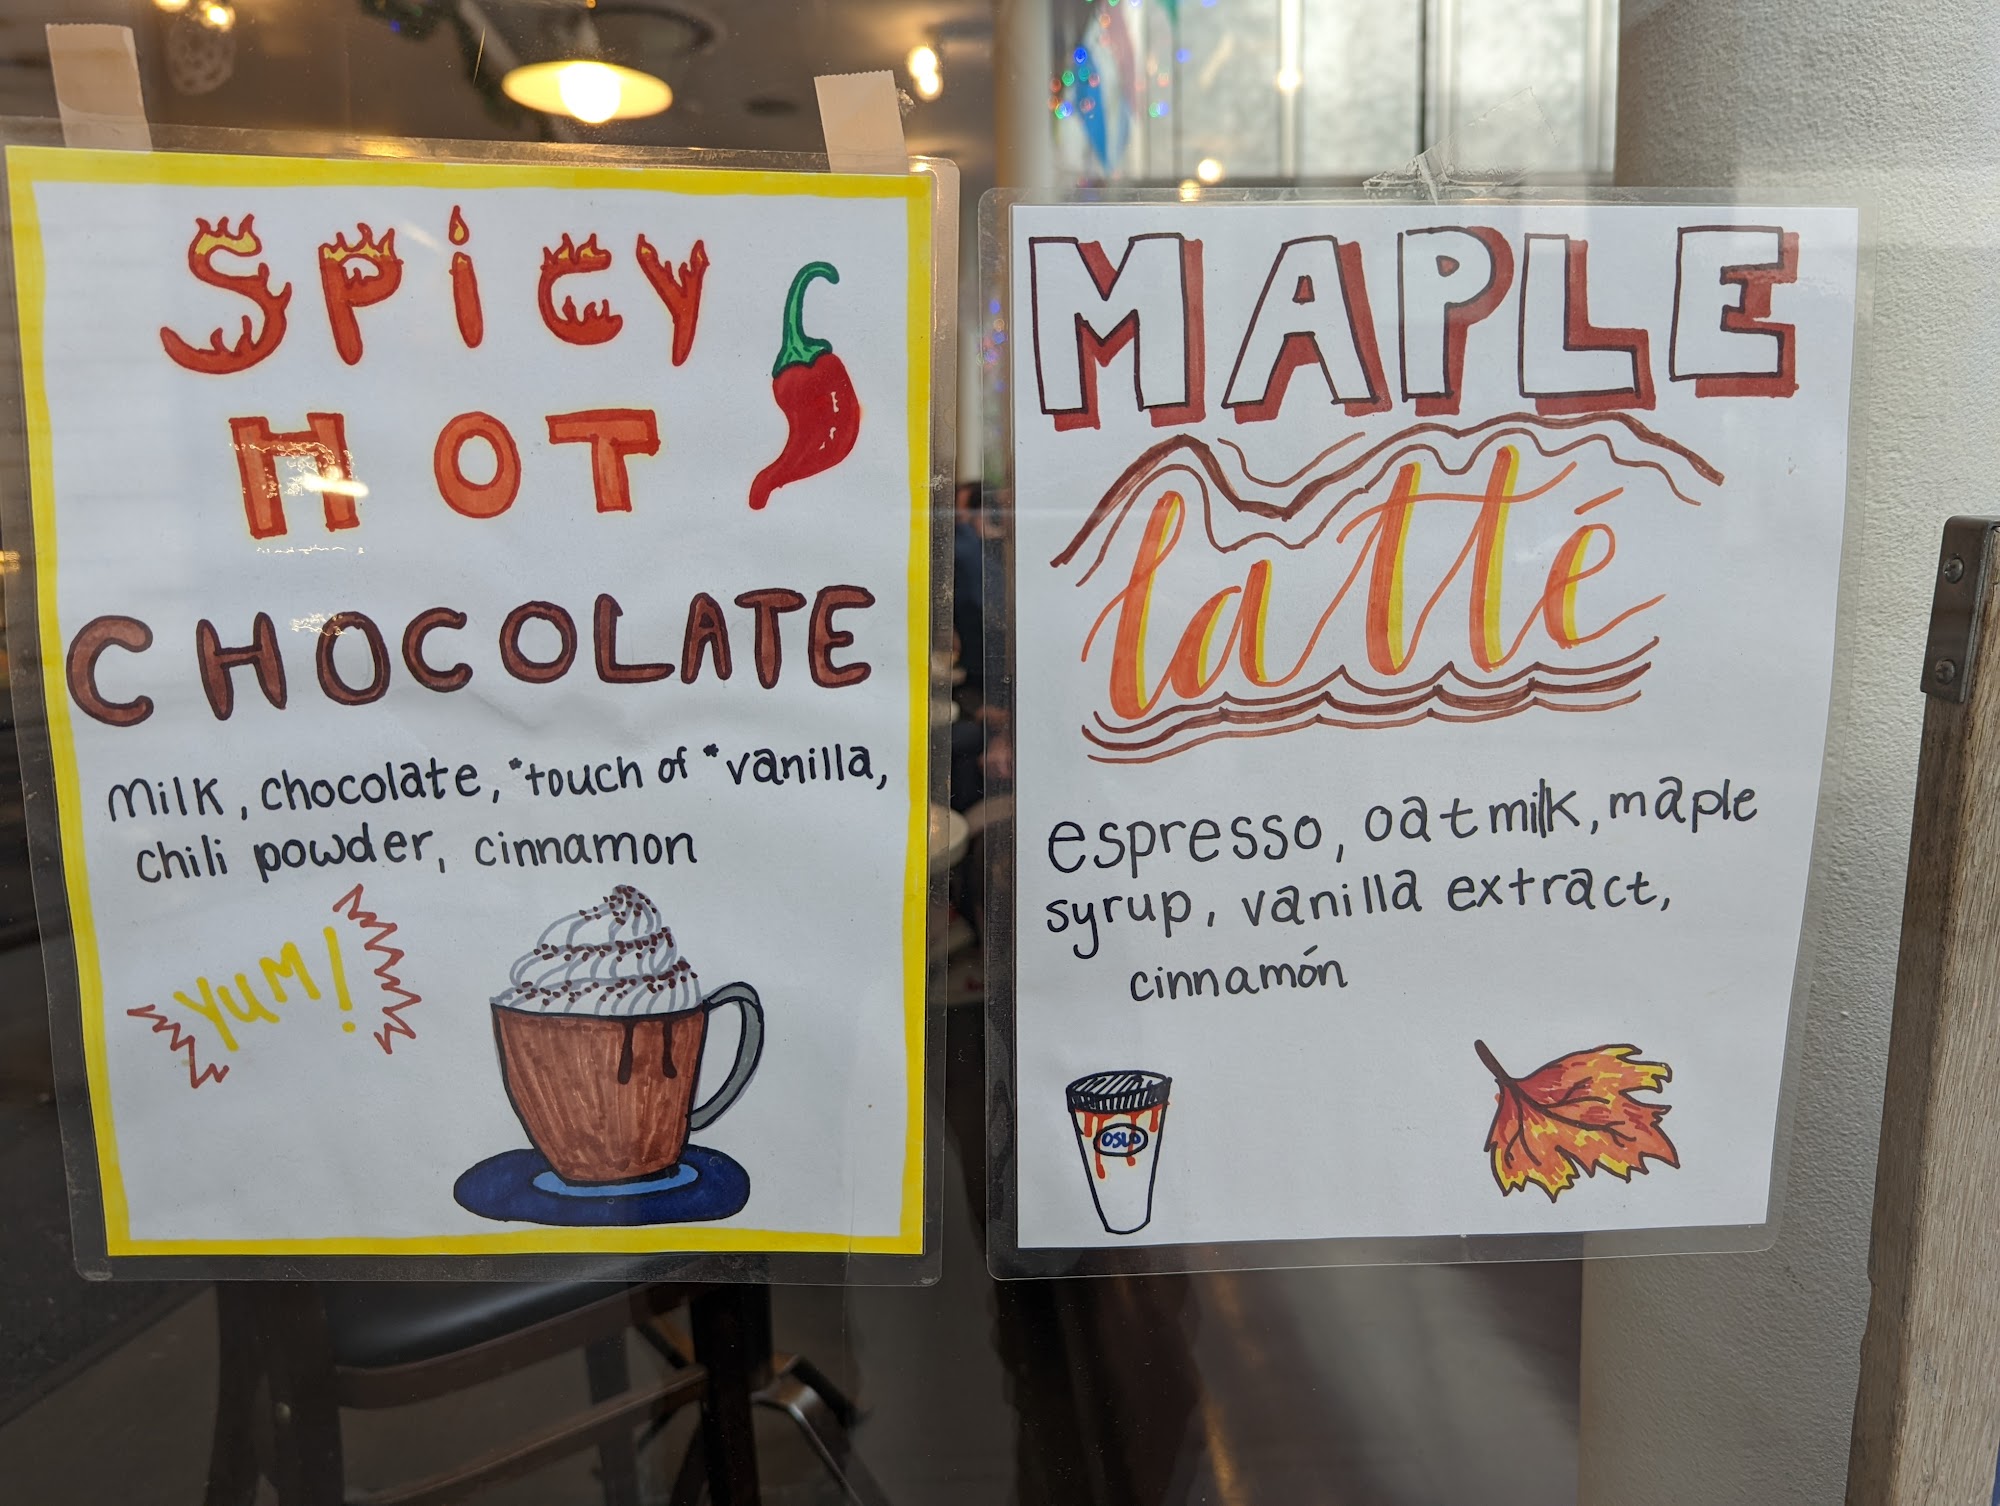 SPiCY
HOT
CHOCOLATE
milk, chocolate, *touch of *vanilla,
chili powder, cinnamon
YUM!
MAPLE
latté
espresso, oatmilk, maple
syrup, vanilla extract,
cinnamón
OSLO